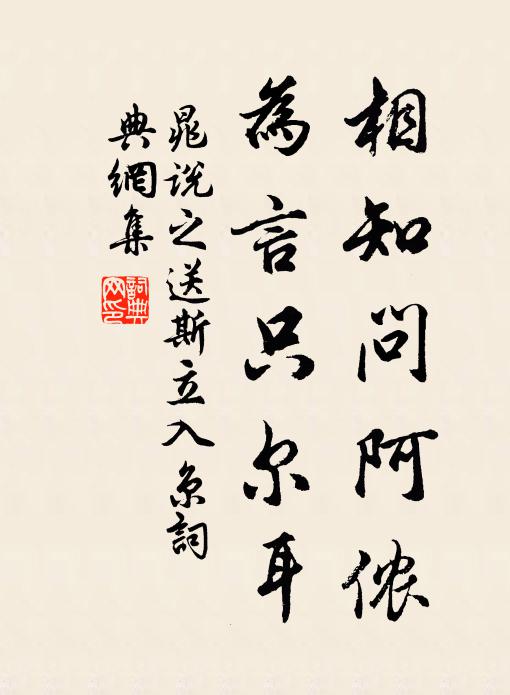 相知问阿侬
為言只尔耳
晁说之送斯立入京詞
典網集
詞典网印